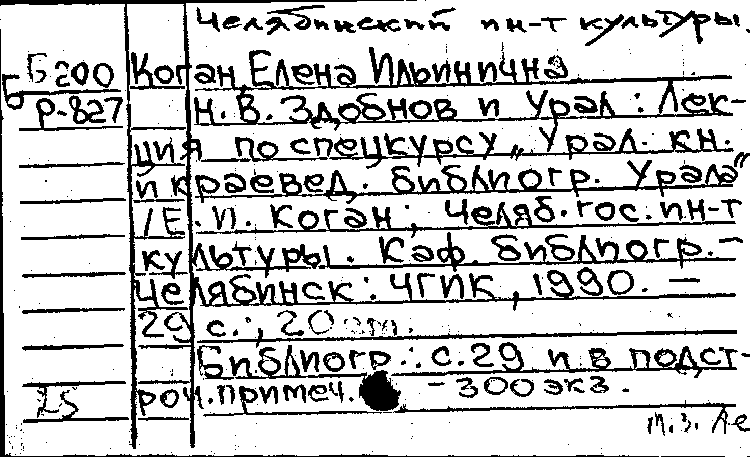 Челябинский ин-т культуры.
Б Б200 Коган, Елена Ильинична
Р-827 Н. В. Здобнов и Урал : Лек-
ция по спецкурсу „Урал. кн.
и краевед. библиогр. Урала"
/Е. И. Коган ; Челяб. гос. ин-т
культуры. Каф. библиогр. –
Челябинск : ЧГИК, 1990. –
29 с. ; 20 см.
Библиогр.: с. 29 и в подст-
25 роч. примеч. – 300 экз.
т. з.